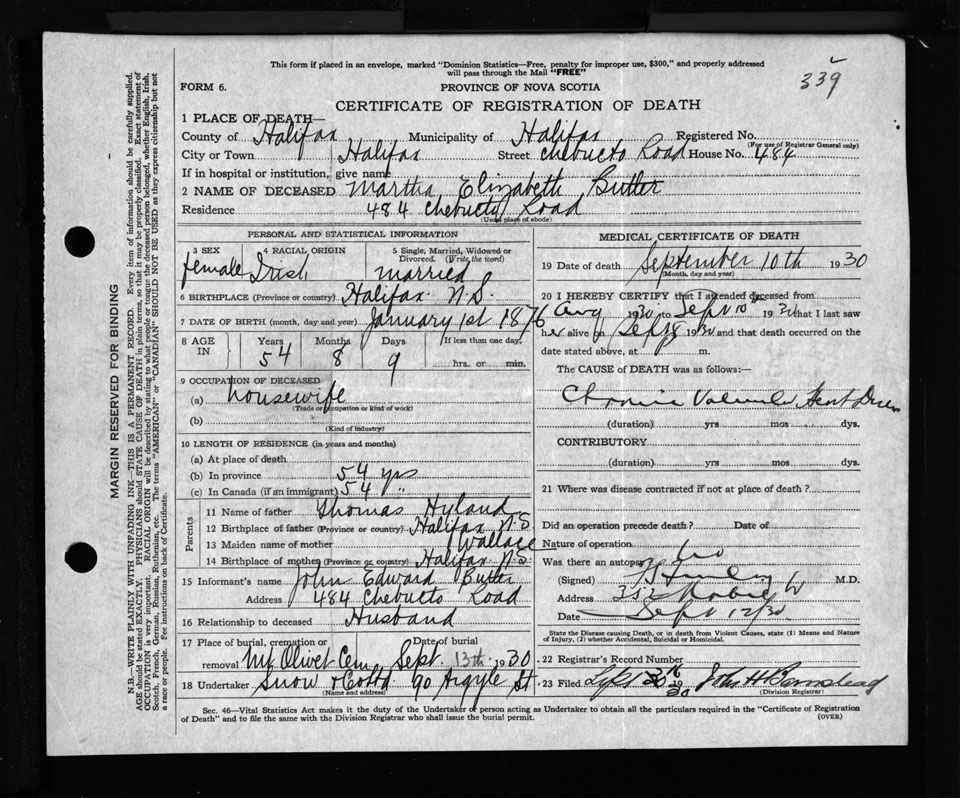 This form if placed in an envelope, marked "Dominion Statistics—Free, penalty for improper use, $300," and properly addressed
will pass through the Mail "FREE"
339
FORM 6.
PROVINCE OF NOVA SCOTIA
CERTIFICATE OF REGISTRATION OF DEATH
1 PLACE OF DEATH—
County of Halifax Municipality of Halifax Registered No.
(For use of Registrar General only)
City or Town Halifax Street Chebucto Road House No. 484
If in hospital or institution, give name
2 NAME OF DECEASED Martha Elizabeth Butler
Residence 484 Chebucto Road
(Usual place of abode)
PERSONAL AND STATISTICAL INFORMATION
3 SEX 4 RACIAL ORIGIN 5 Single, Married, Widowed or Divorced. (Write the word)
female Irish married
6 BIRTHPLACE (Province or country) Halifax N.S.
7 DATE OF BIRTH (month, day and year) January 1st 1876
8 AGE IN Years Months Days If less than one day,
54 8 9 hrs. or min.
9 OCCUPATION OF DECEASED
(a) housewife
(Trade or occupation or kind of work)
(b)
(Kind of industry)
10 LENGTH OF RESIDENCE (in years and months)
(a) At place of death
(b) In province 54 yrs
(c) In Canada (if an immigrant) 54 "
Parents
11 Name of father Thomas Hyland
12 Birthplace of father (Province or country) Halifax N.S.
13 Maiden name of mother Wallace
14 Birthplace of mother (Province or country) Halifax N.S.
15 Informant's name John Edward Butler
Address 484 Chebucto Road
16 Relationship to deceased Husband
17 Place of burial, cremation or removal Mt Olivet Cem. Date of burial Sept. 13th 1930
18 Undertaker Snow & Co Ltd 90 Argyle St
(Name and address)
MEDICAL CERTIFICATE OF DEATH
19 Date of death September 10th 1930
(Month, day and year)
20 I HEREBY CERTIFY that I attended deceased from
Aug 1930 to Sept 10 1930 that I last saw
her alive on Sept 8 1930 and that death occurred on
date stated above, at m.
The CAUSE of DEATH was as follows:—
Chronic Valvular Heart Disease
(duration) yrs mos dys.
CONTRIBUTORY
(duration) yrs mos dys.
21 Where was disease contracted if not at place of death?
Did an operation precede death? Date of
Nature of operation
Was there an autopsy? no
(Signed) M.D.
Address
Date Sept 12/30
State the Disease causing Death, or in death from Violent Causes, state (1) Means and Nature of Injury, (2) whether Accidental, Suicidal or Homicidal.
22 Registrar's Record Number
23 Filed Sept John H Barnstead
(Division Registrar)
Sec. 46—Vital Statistics Act makes it the duty of the Undertaker or person acting as Undertaker to obtain all the particulars required in the "Certificate of Registration
of Death" and to file the same with the Division Registrar who shall issue the burial permit.
(OVER)
MARGIN RESERVED FOR BINDING
N.B.—WRITE PLAINLY WITH UNFADING INK—THIS IS A PERMANENT RECORD. Every item of information should be carefully supplied.
AGE should be stated EXACTLY. PHYSICIANS should STATE CAUSE OF DEATH in plain terms, so that it may be properly classified. Exact statement of
OCCUPATION is very important. RACIAL ORIGIN will be described by stating to what people or tongue the deceased person belonged, whether English, Irish,
Scotch, French, German, Russian, Ruthenian, etc. The terms "AMERICAN" or "CANADIAN" SHOULD NOT BE USED as they express citizenship but not
a race or people. Fee instructions on back of Certificate.